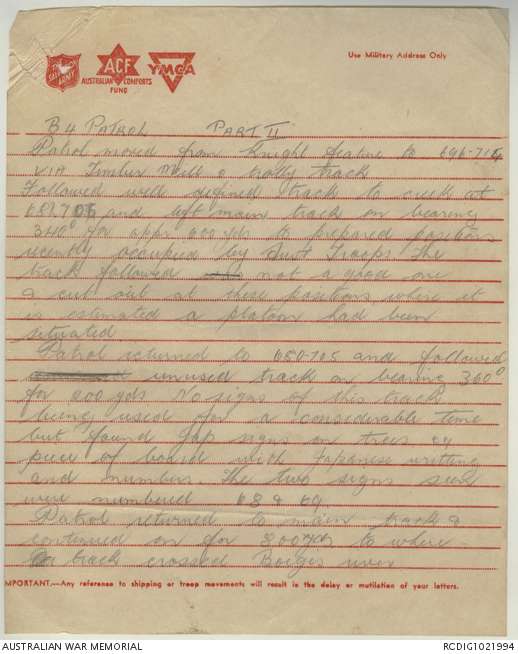 THE SALVATION ARMY
ACF
AUSTRALIAN COMFORTS
FUND
YMCA
Use Military Address Only
B4 Patrol Part II
Patrol moved from Knight feature to 696-714
VIA Timber Mill & trolly track
Followed well defined track to creek at
and left main track on bearing
340° for appr 400 yds to prepared positions
recently occupied by Troops The
track followed not a good one
& cut out at these positions where it
is estimated a platoon had been
situated
Patrol returned to 680-705 and followed
unused track on bearing 360°
for 200 yds No signs of this track
being used for a considerable time
but found Jap signs on trees
piece of board with Japanese writting
and number. The two signs seen
were numbered 68 & 69
Patrol returned to main track &
continued on for 300 yds to where
track crossed river
IMPORTANT.—Any reference to shipping or troop movements will result in the delay or mutilation of your letters.
AUSTRALIAN WAR MEMORIAL
RCDIG1021994